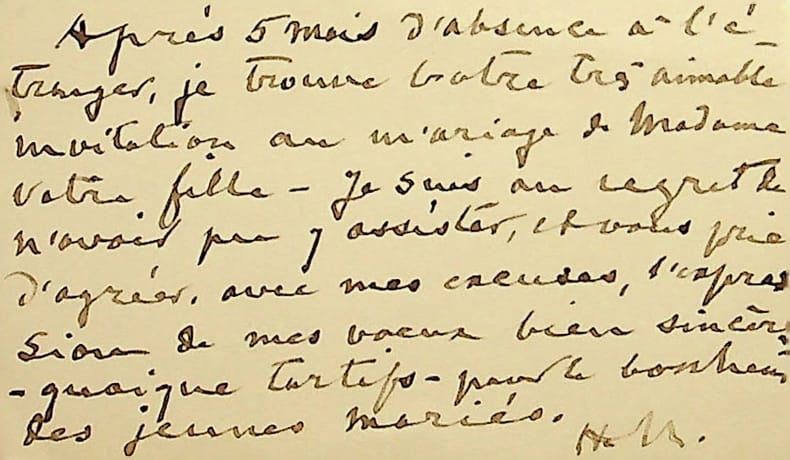 Après 5 mois d'absence à l'é-
tranger, je trouve votre très aimable
invitation au mariage de Madame
votre fille - Je suis au regret de
n'avoir pu y assister, et vous prie
d'agréer, avec mes excuses, l'expres
sion de mes voeux bien sincères
- quoique tartifs - pour le bonheur
des jeunes mariés.